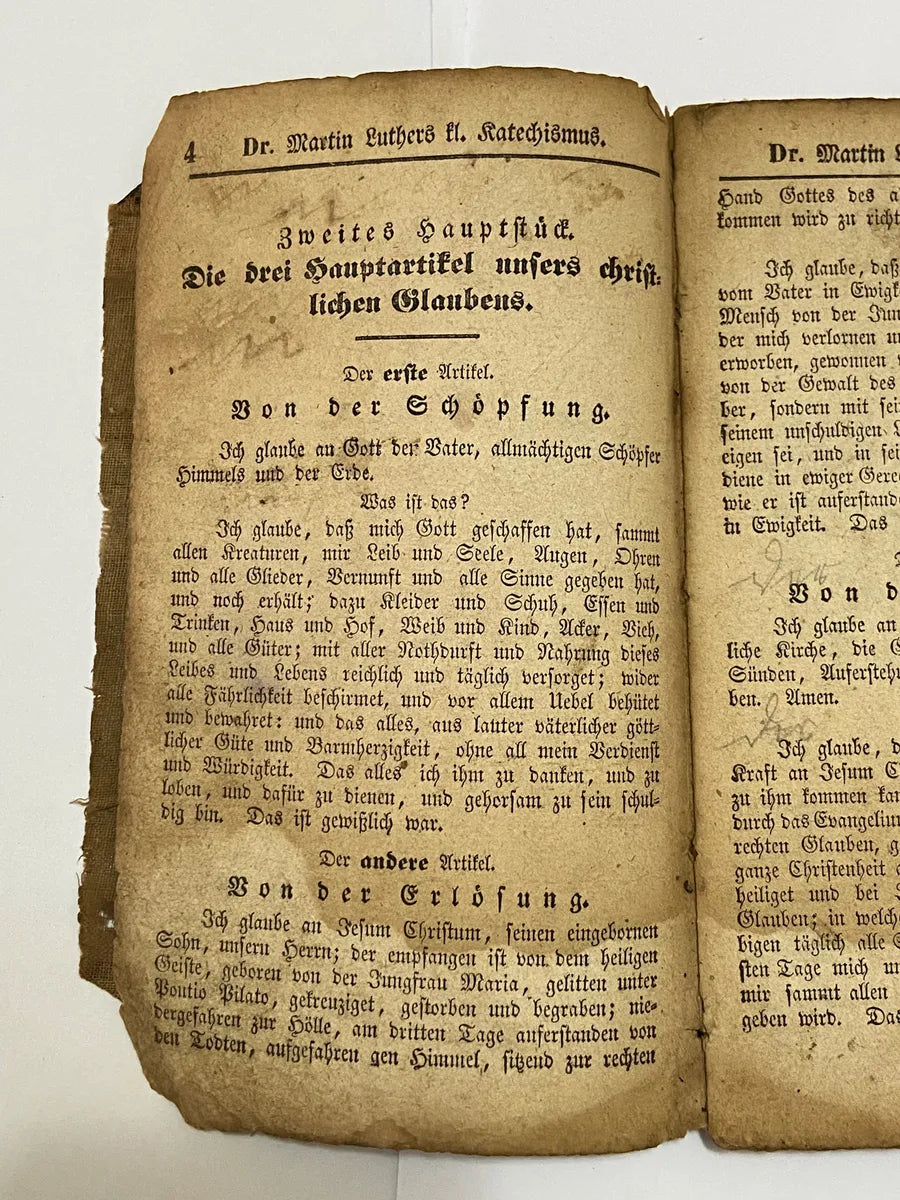 4 Dr. Martin Luthers kl. Katechismus.
Zweites Hauptstück.
Die drei Hauptartikel unsers christ-
lichen Glaubens.
Der erste Artikel.
Von der Schöpfung.
Ich glaube an Gott der Vater, allmächtigen Schöpfer
Himmels und der Erde.
Was ist das?
Ich glaube, daß mich Gott geschaffen hat, sammt
allen Kreaturen, mir Leib und Seele, Augen, Ohren
und alle Glieder, Vernunft und alle Sinne gegeben hat,
und noch erhält; dazu Kleider und Schuh, Essen und
Trinken, Haus und Hof, Weib und Kind, Acker, Vieh,
und alle Güter; mit aller Nothdurft und Nahrung dieses
Leibes und Lebens reichlich und täglich versorget; wider
alle Fährlichkeit beschirmet, und vor allem Uebel behütet
und bewahret: und das alles, aus lauter väterlicher gött-
licher Güte und Barmherzigkeit, ohne all mein Verdienst
und Würdigkeit. Das alles ich ihm zu danken, und zu
loben, und dafür zu dienen, und gehorsam zu sein schul-
dig bin. Das ist gewißlich war.
Der andere Artikel.
Von der Erlösung.
Ich glaube an Jesum Christum, seinen eingebornen
Sohn, unsern Herrn; der empfangen ist von dem heiligen
Geiste, geboren von der Jungfrau Maria, gelitten unter
Pontio Pilato, gekreuziget, gestorben und begraben; nie-
dergefahren zur Hölle, am dritten Tage auferstanden von
den Todten, aufgefahren gen Himmel, sitzend zur rechten
Dr. Martin
Hand Gottes des
kommen wird zu
Ich glaube, daß
vom Vater in
Mensch von der
der mich verlornen
erworben, gewonnen
von der Gewalt des
ber, sondern mit
seinem unschuldigen
eigen sei, und in
diene in ewiger
wie er ist
in Ewigkeit. Das
Von
Ich glaube an
liche Kirche, die
Sünden,
ben. Amen.
Ich glaube,
Kraft an Jesum
zu ihm kommen
durch das
rechten Glauben,
ganze Christenheit
heiliget und bei
Glauben; in
bigen täglich alle
sten Tage mich
mir sammt allen
geben wird.